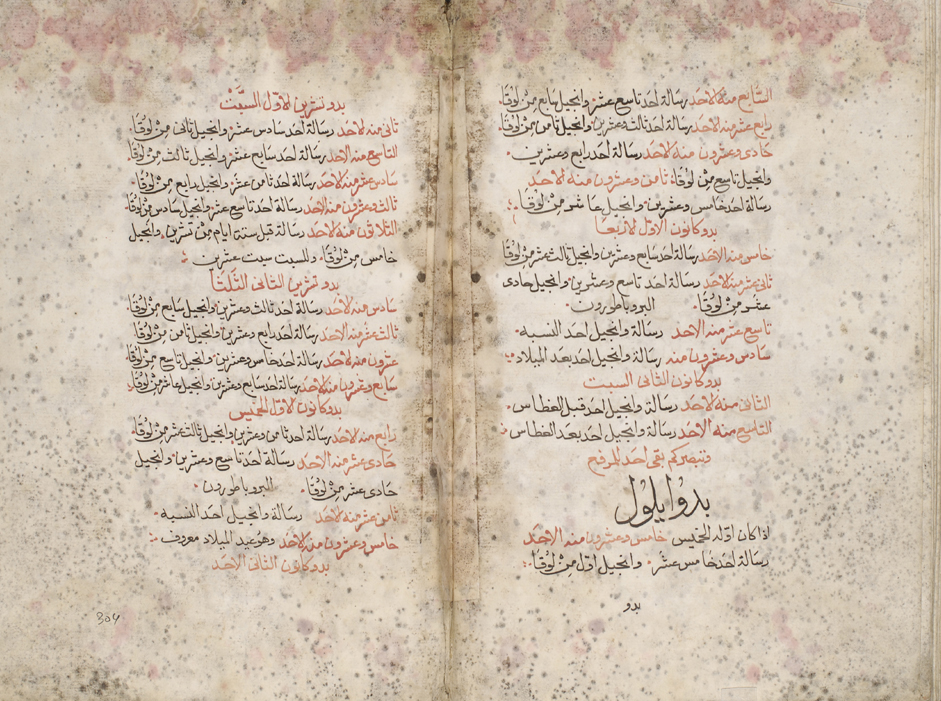 السابع منه الاحد رسالة احد تاسع عشر وانجيل سابع مِنْ لُوقَا
رابع عشر منه الاحد رسالة احد ثالث وعشرين وانجيل ثامن مِنْ لُوقَا.
حادى وعشرون منه الاحد رسالة احد رابع وعشرين.
وانجيل تاسع مِنْ لُوقا. ثامن وعشرون منه الاحد
رسالة احد خامس وعشرين. وانجيل عاشر من لوقا.
بدو كانون الاول الاربعا
خامس منه الاحد رسالة احد سابع وعشرين وانجيل ثالث عشر من لُوقَا
ثانى عشر منه الاحد رسالة احد تاسع وعشرين وانجيل حادى
عشر من لُوقَا. البروباطورون.
تاسع عشر منه الاحد رسالة وانجيل احد النسبه.
سادس وعشرون منه رسالة وانجيل احد بعد الميلاد
بدو كانون الثانى السبت
الثانى منه الاحد رسالة وانجيل احد قبل الغطاس.
التاسع منه الاحد رسالة وانجيل احد بعد الغطاس
احد المرفع
بدو ايلول
اذا كان اوله الخميس خامس وعشرون منه الاحد
رسالة احد خامس عشر. وانجيل اول مِنْ لُوقَا.
بدو
بدو تشرين الاول السبت
ثانى منه الاحد رسالة احد سادس عشر وانجيل ثانى من لُوقَا
التاسع منه الاحد رسالة احد سابع عشر وانجيل ثالث مِنْ لوقَا
سادس عشر منه الاحد رسالة احد ثامن عشر. وانجيل رابع مِنْ لُوقَا.
ثالث وعشرون منه الاحد رسالة احد تاسع عشر وانجيل سادس من لوقا.
الثلاثون منه الاحد رسالة قبل ستة ايام مِنْ تشرين. وانجيل
خامس مِنْ لُوقَا. وللسبت سبت عشرين
بدو تشرين الثانى الثلثا
سادس منه الاحد رسالة احد ثالث وعشرين وانجيل سابع مِنْ لُوقَا
ثالث عشر منه الاحد رسالة احد رابع وعشرين وانجيل ثامن مِنْ لُوقَا
عشرون منه الاحد رسالة احد خامس وعشرين وانجيل تاسع مِنْ لُوقَا
سابع وعشرون منه الاحد رسالة احد سابع وعشرين وانجيل عاشر مِنْ لُوقَا
بدو كانون الاول الخميس
رابع منه الاحد رسالة احد ثامن وعشرين وانجيل ثالث عشر مِنْ لُوقَا.
حادى عشر منه الاحد رسالة احد تاسع وعشرين. وانجيل
حادى عشر مِنْ لُوقَا. البروباطورون.
ثامن عشر منه الاحد رسالة وانجيل احد النسبه.
خامس وعشرون منه الاحد وهو عيد الميلاد معروف
بدو كانون الثانى الاحد
304